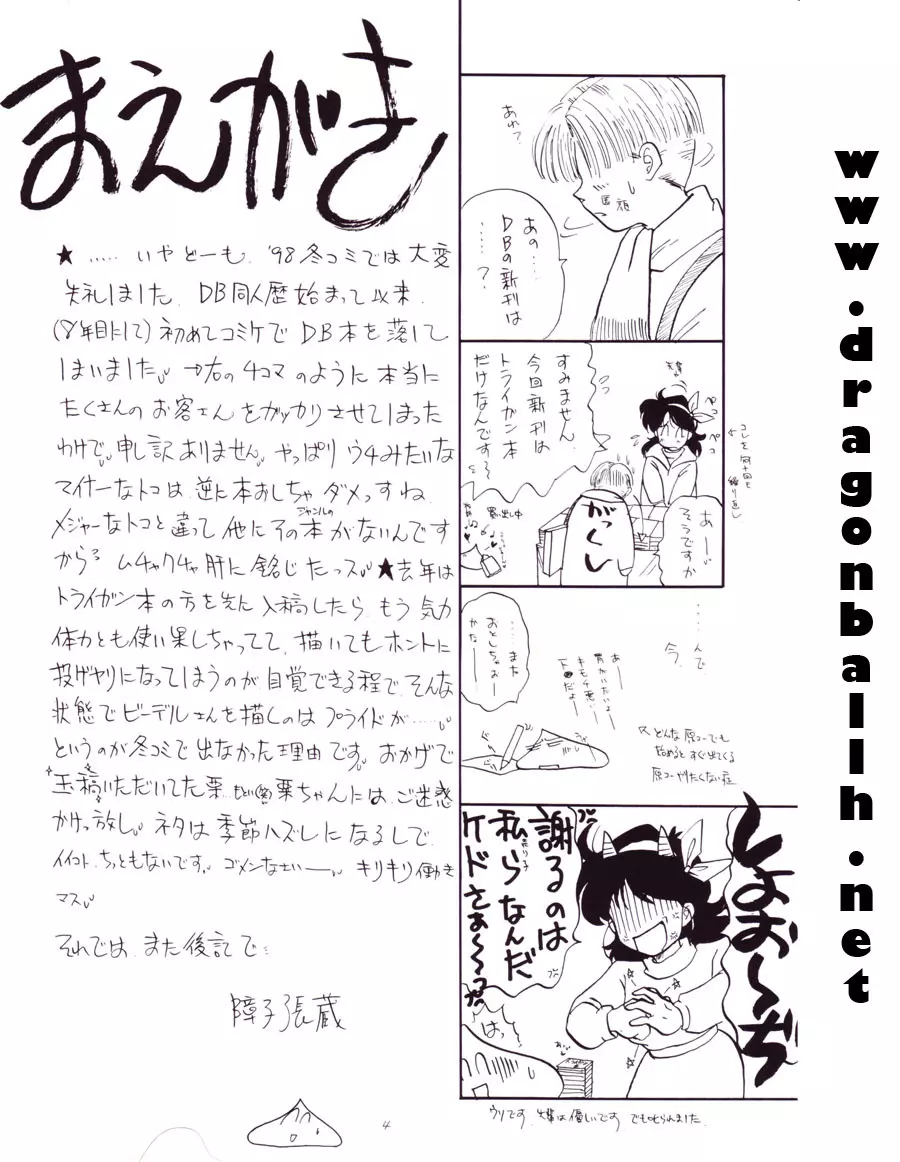 まえがき
★……いやどーも、'98冬コミでは大変
失礼しました。DB同人歴始まって以来、
(8年目にして)初めてコミケでDB本を落して
しまいました。→右の4コマのように本当に
たくさんのお客さんをガッカリさせてしまった
わけで。申し訳ありません。やっぱりウチみたいな
マイナーなトコは、逆に本おとしちゃダメっすね。
メジャーなトコと違って他にそのジャンルの本がないんです
から。ムチャクチャ肝に銘じたっス。★去年は
トライガン本の方を先に入稿したら、もう気力
体力とも使い果しちゃってて、描いてもホントに
投げヤリになってしまうのが自覚できる程で。そんな
状態でビーデルさんを描くのはプライドが……。
というのが冬コミで出なかった理由です。おかげで
玉稿いただいてた栗
栗ちゃんには、ご迷惑
かけっ放し。ネタは季節ハズレになるしで
イイコト、ちっともないです。ゴメンなさいーー。キリキリ働き
マス。
それでは、また後記で…
障子張蔵
4
あれ?
あの……
DBの新刊は
……?
すみません
今回新刊は
トライガン本
だけなんです〜
ペコ
ペコ
コレを何十回も
繰り返し
あーー
そうですか
がっくし
……んで
今、
……また
おとしちゃおー
かなー
あー
胃がいたいよー
キモチ悪いー
↖どんな原コーでも
始めるとすぐ出てくる
原コーやりたくない症
しょお〜ぢ
謝るのは
私らなんだ
ケドさぁ〜〜
はっ
ウソです。先輩は優しいです。でも叱られました。
www.dragonballh.net